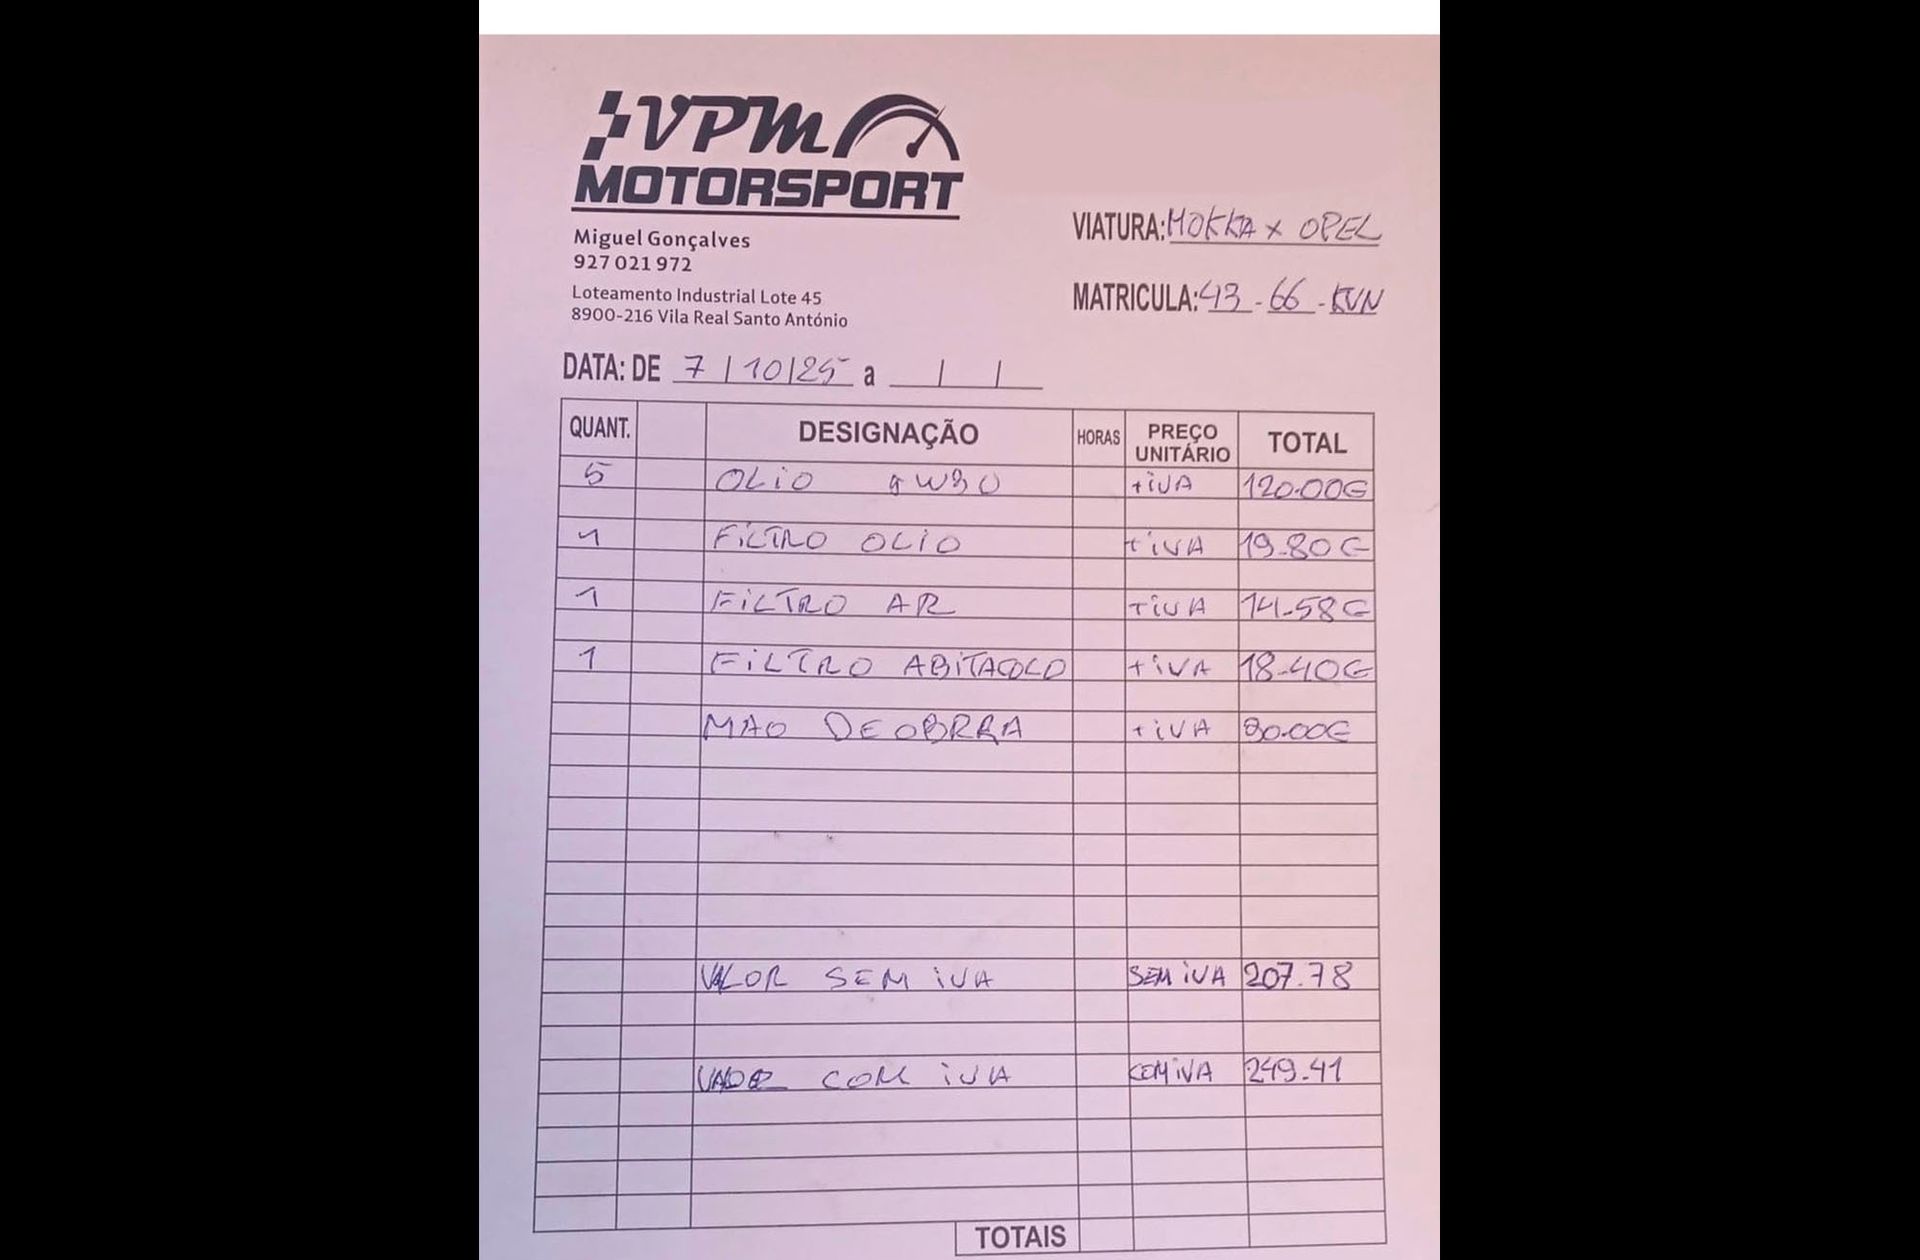 VPM
MOTORSPORT
Miguel Gonçalves
927 021 972
Loteamento Industrial Lote 45
8900-216 Vila Real Santo António
VIATURA: MOKKA X OPEL
MATRICULA: 43-66-KVN
DATA: DE 7/10/25 a / /
QUANT. DESIGNAÇÃO HORAS PREÇO UNITÁRIO TOTAL
5 OLiO W30 +iVA 120.00€
1 FiLTRO OLiO +iVA 19.80€
1 FiLTRO AR +iVA 14.58€
1 FiLTRO ABiTACOLO +iVA 18.40€
MAO DE OBRRA +iVA €
VALOR SEM iVA SEM iVA 207.78
COM iVA COM iVA 249.41
TOTAIS